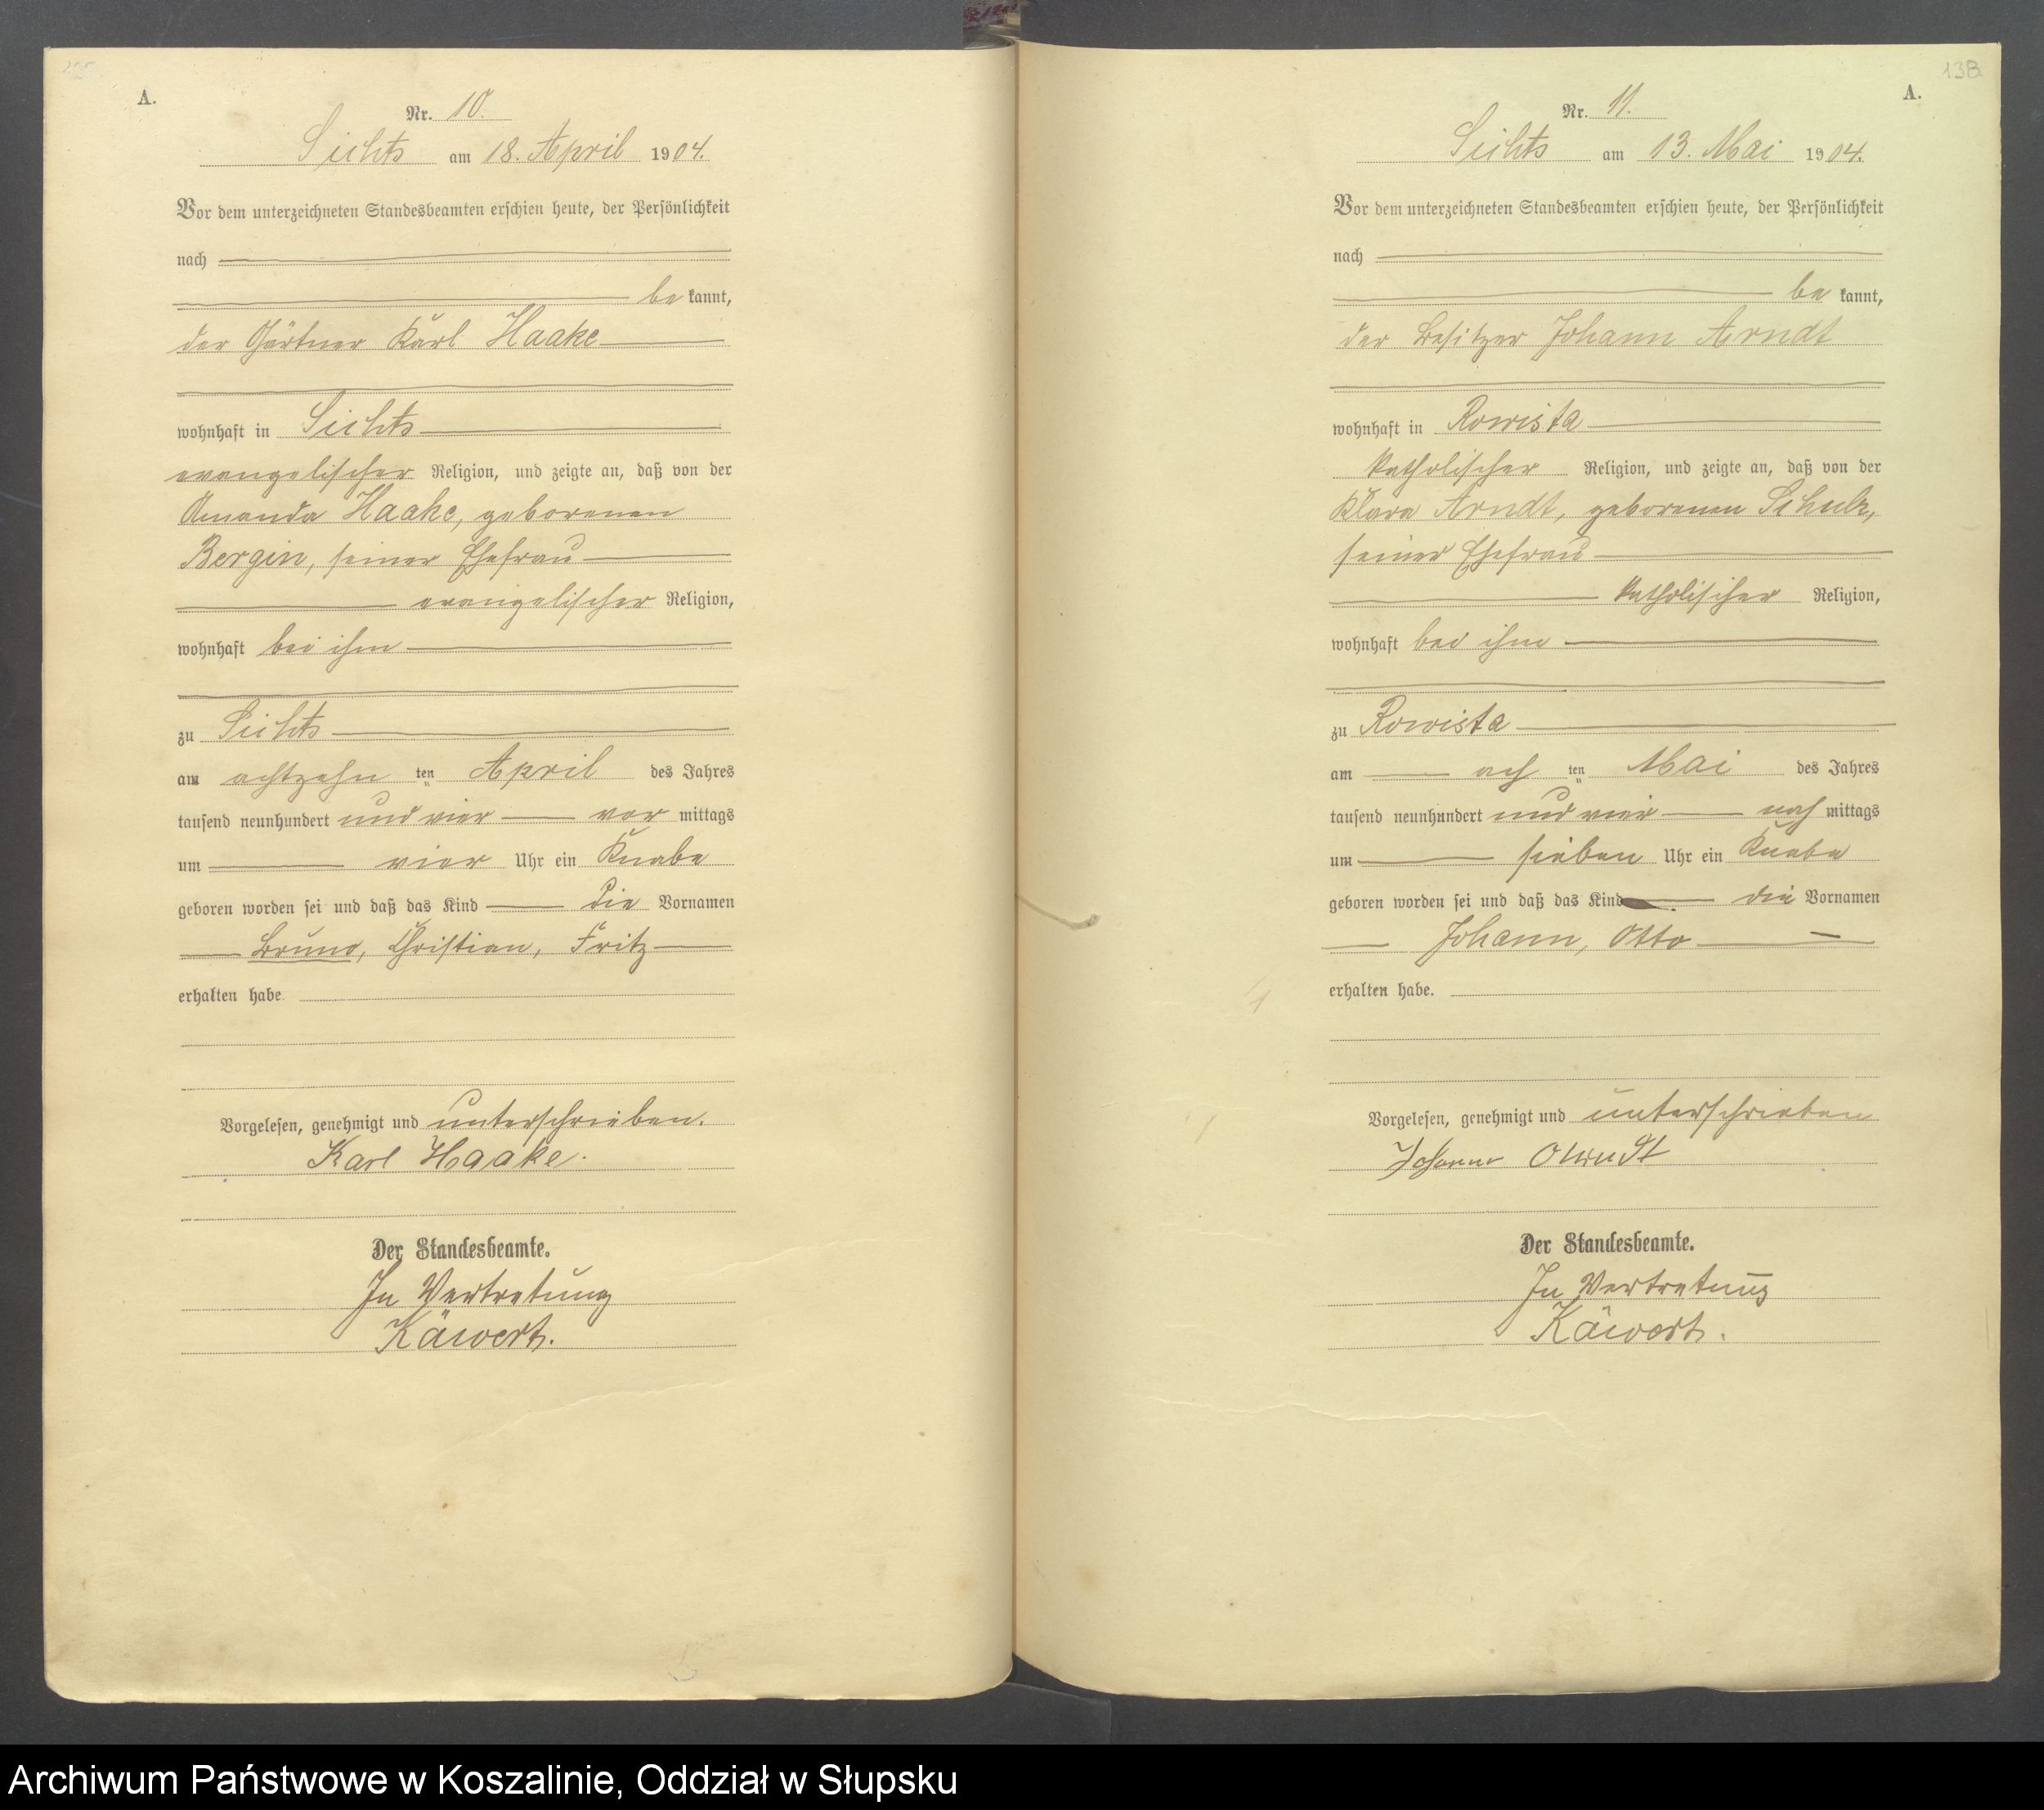 A.
Nr. 10.
Sichts am 18. April 1904.
Vor dem unterzeichneten Standesbeamten erschien heute, der Persönlichkeit
nach
be kannt,
der Gärtner Karl Haake
wohnhaft in Sichts
evangelischer Religion, und zeigte an, daß von der
Amanda Haake, geborenen
Bergin, seiner Ehefrau
evangelischer Religion,
wohnhaft bei ihm
zu Sichts
am achtzehn ten April des Jahres
tausend neunhundert und vier vor mittags
um vier Uhr ein Knabe
geboren worden sei und daß das Kind die Vornamen
Bruno, Christian, Fritz
erhalten habe.
Vorgelesen, genehmigt und unterschrieben.
Karl Haake.
Der Standesbeamte.
In Vertretung
Käwert.
138
A.
Nr. 11.
Sichts am 13. Mai 1904.
Vor dem unterzeichneten Standesbeamten erschien heute, der Persönlichkeit
nach
be kannt,
der Besitzer Johann Arndt
wohnhaft in Rowista
katholischer Religion, und zeigte an, daß von der
Klara Arndt, geborenen Schulz,
seiner Ehefrau
katholischer Religion,
wohnhaft bei ihm
zu Rowista
am ach ten Mai des Jahres
tausend neunhundert und vier nach mittags
um sieben Uhr ein Knabe
geboren worden sei und daß das Kind die Vornamen
Johann, Otto
erhalten habe.
Vorgelesen, genehmigt und unterschrieben
Johann Arndt
Der Standesbeamte.
In Vertretung
Käwert.
Archiwum Państwowe w Koszalinie, Oddział w Słupsku